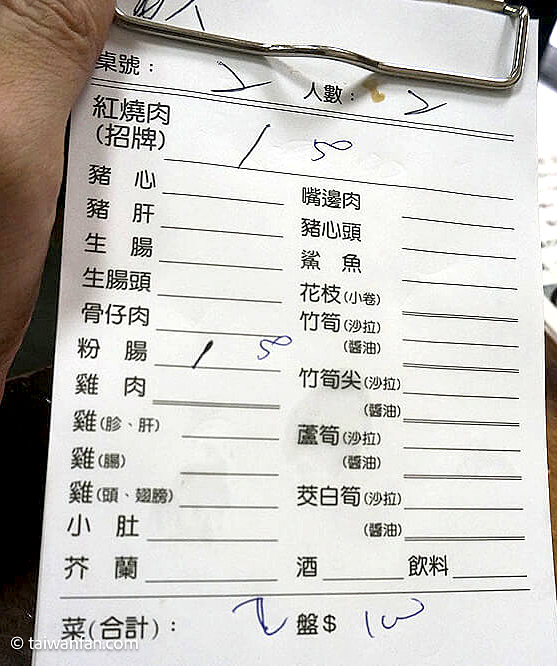 桌號： 2 人數： 2
紅燒肉
(招牌) / 50
豬 心
嘴邊肉
豬 肝
豬心頭
生 腸
鯊 魚
生腸頭
花枝(小卷)
骨仔肉
竹筍(沙拉)
(醬油)
粉 腸 / 50
竹筍尖(沙拉)
雞 肉
(醬油)
雞(胗、肝)
蘆筍(沙拉)
雞(腸)
(醬油)
雞(頭、翅膀)
茭白筍(沙拉)
小 肚
(醬油)
芥 蘭
酒 飲料
菜(合計)： 2 盤$ 100
© taiwanfan.com